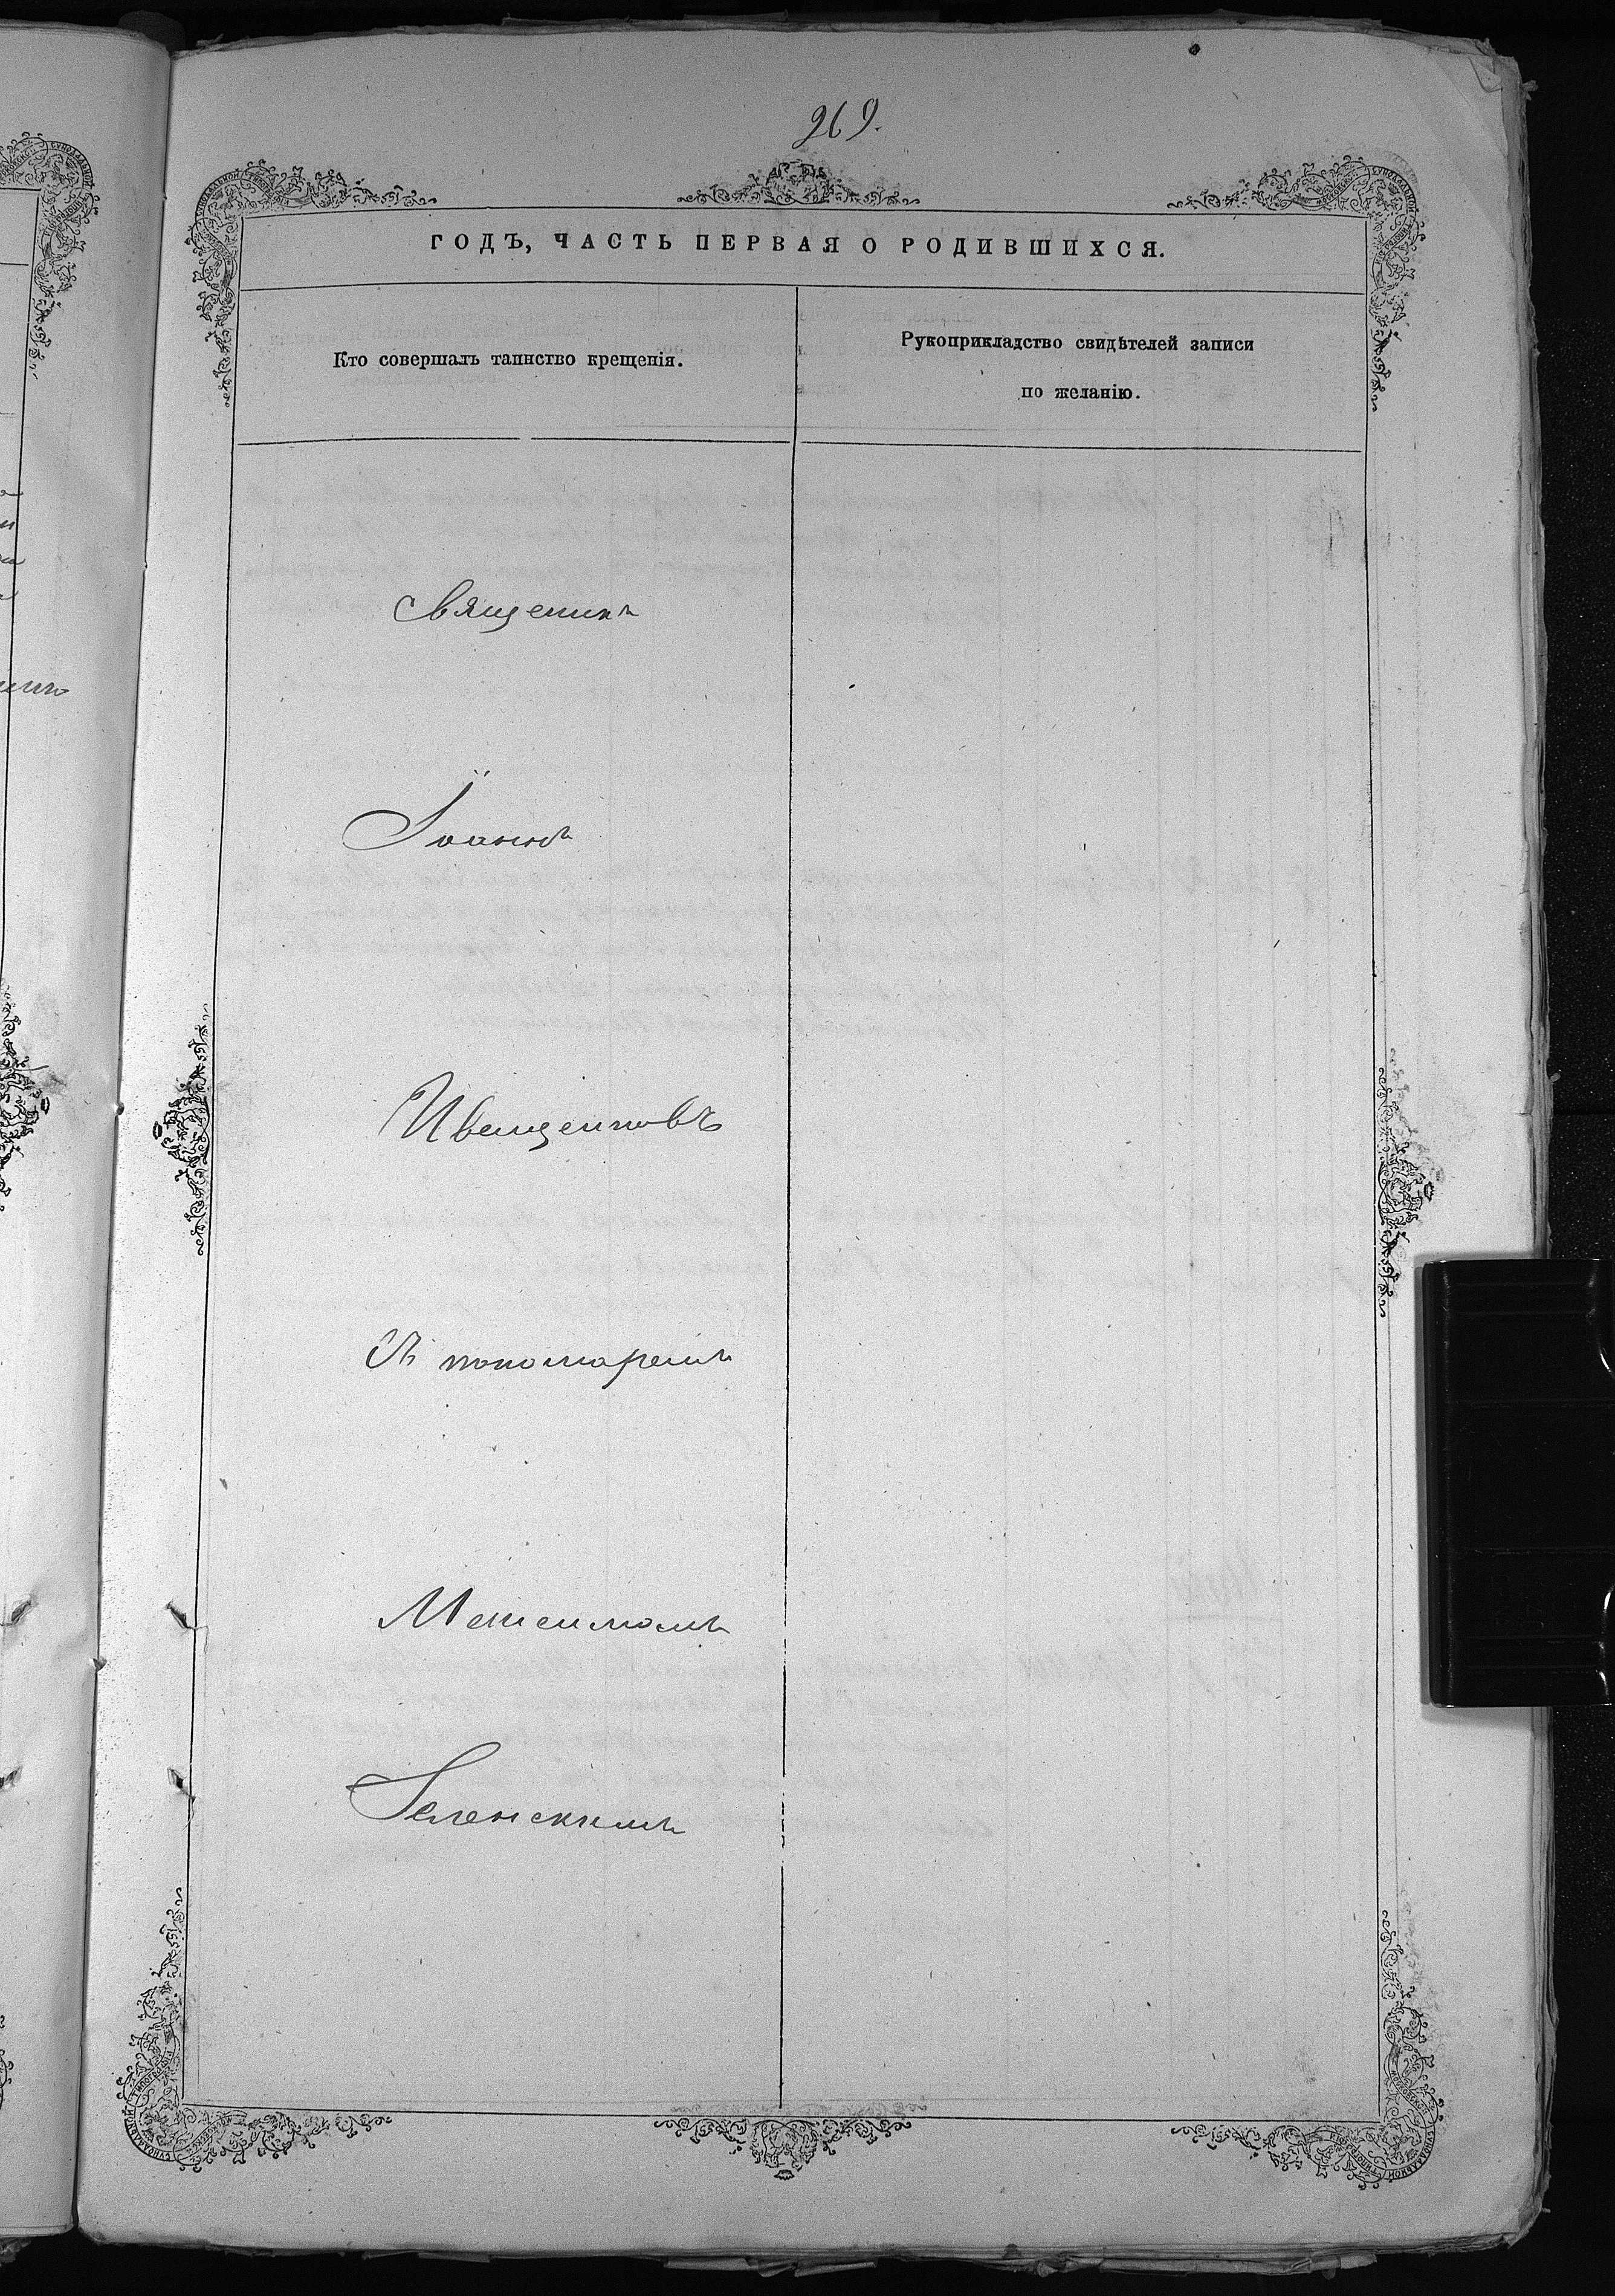 969.
ГОДЪ, ЧАСТЬ ПЕРВАЯ О РОДИВШИХСЯ.
Кто совершалъ таинство крещенія.
Рукоприкладство свидѣтелей записи
по желанію.
Священикъ
Іоаннъ
Иващенковъ
Съ пономаремъ
Зеленскимъ